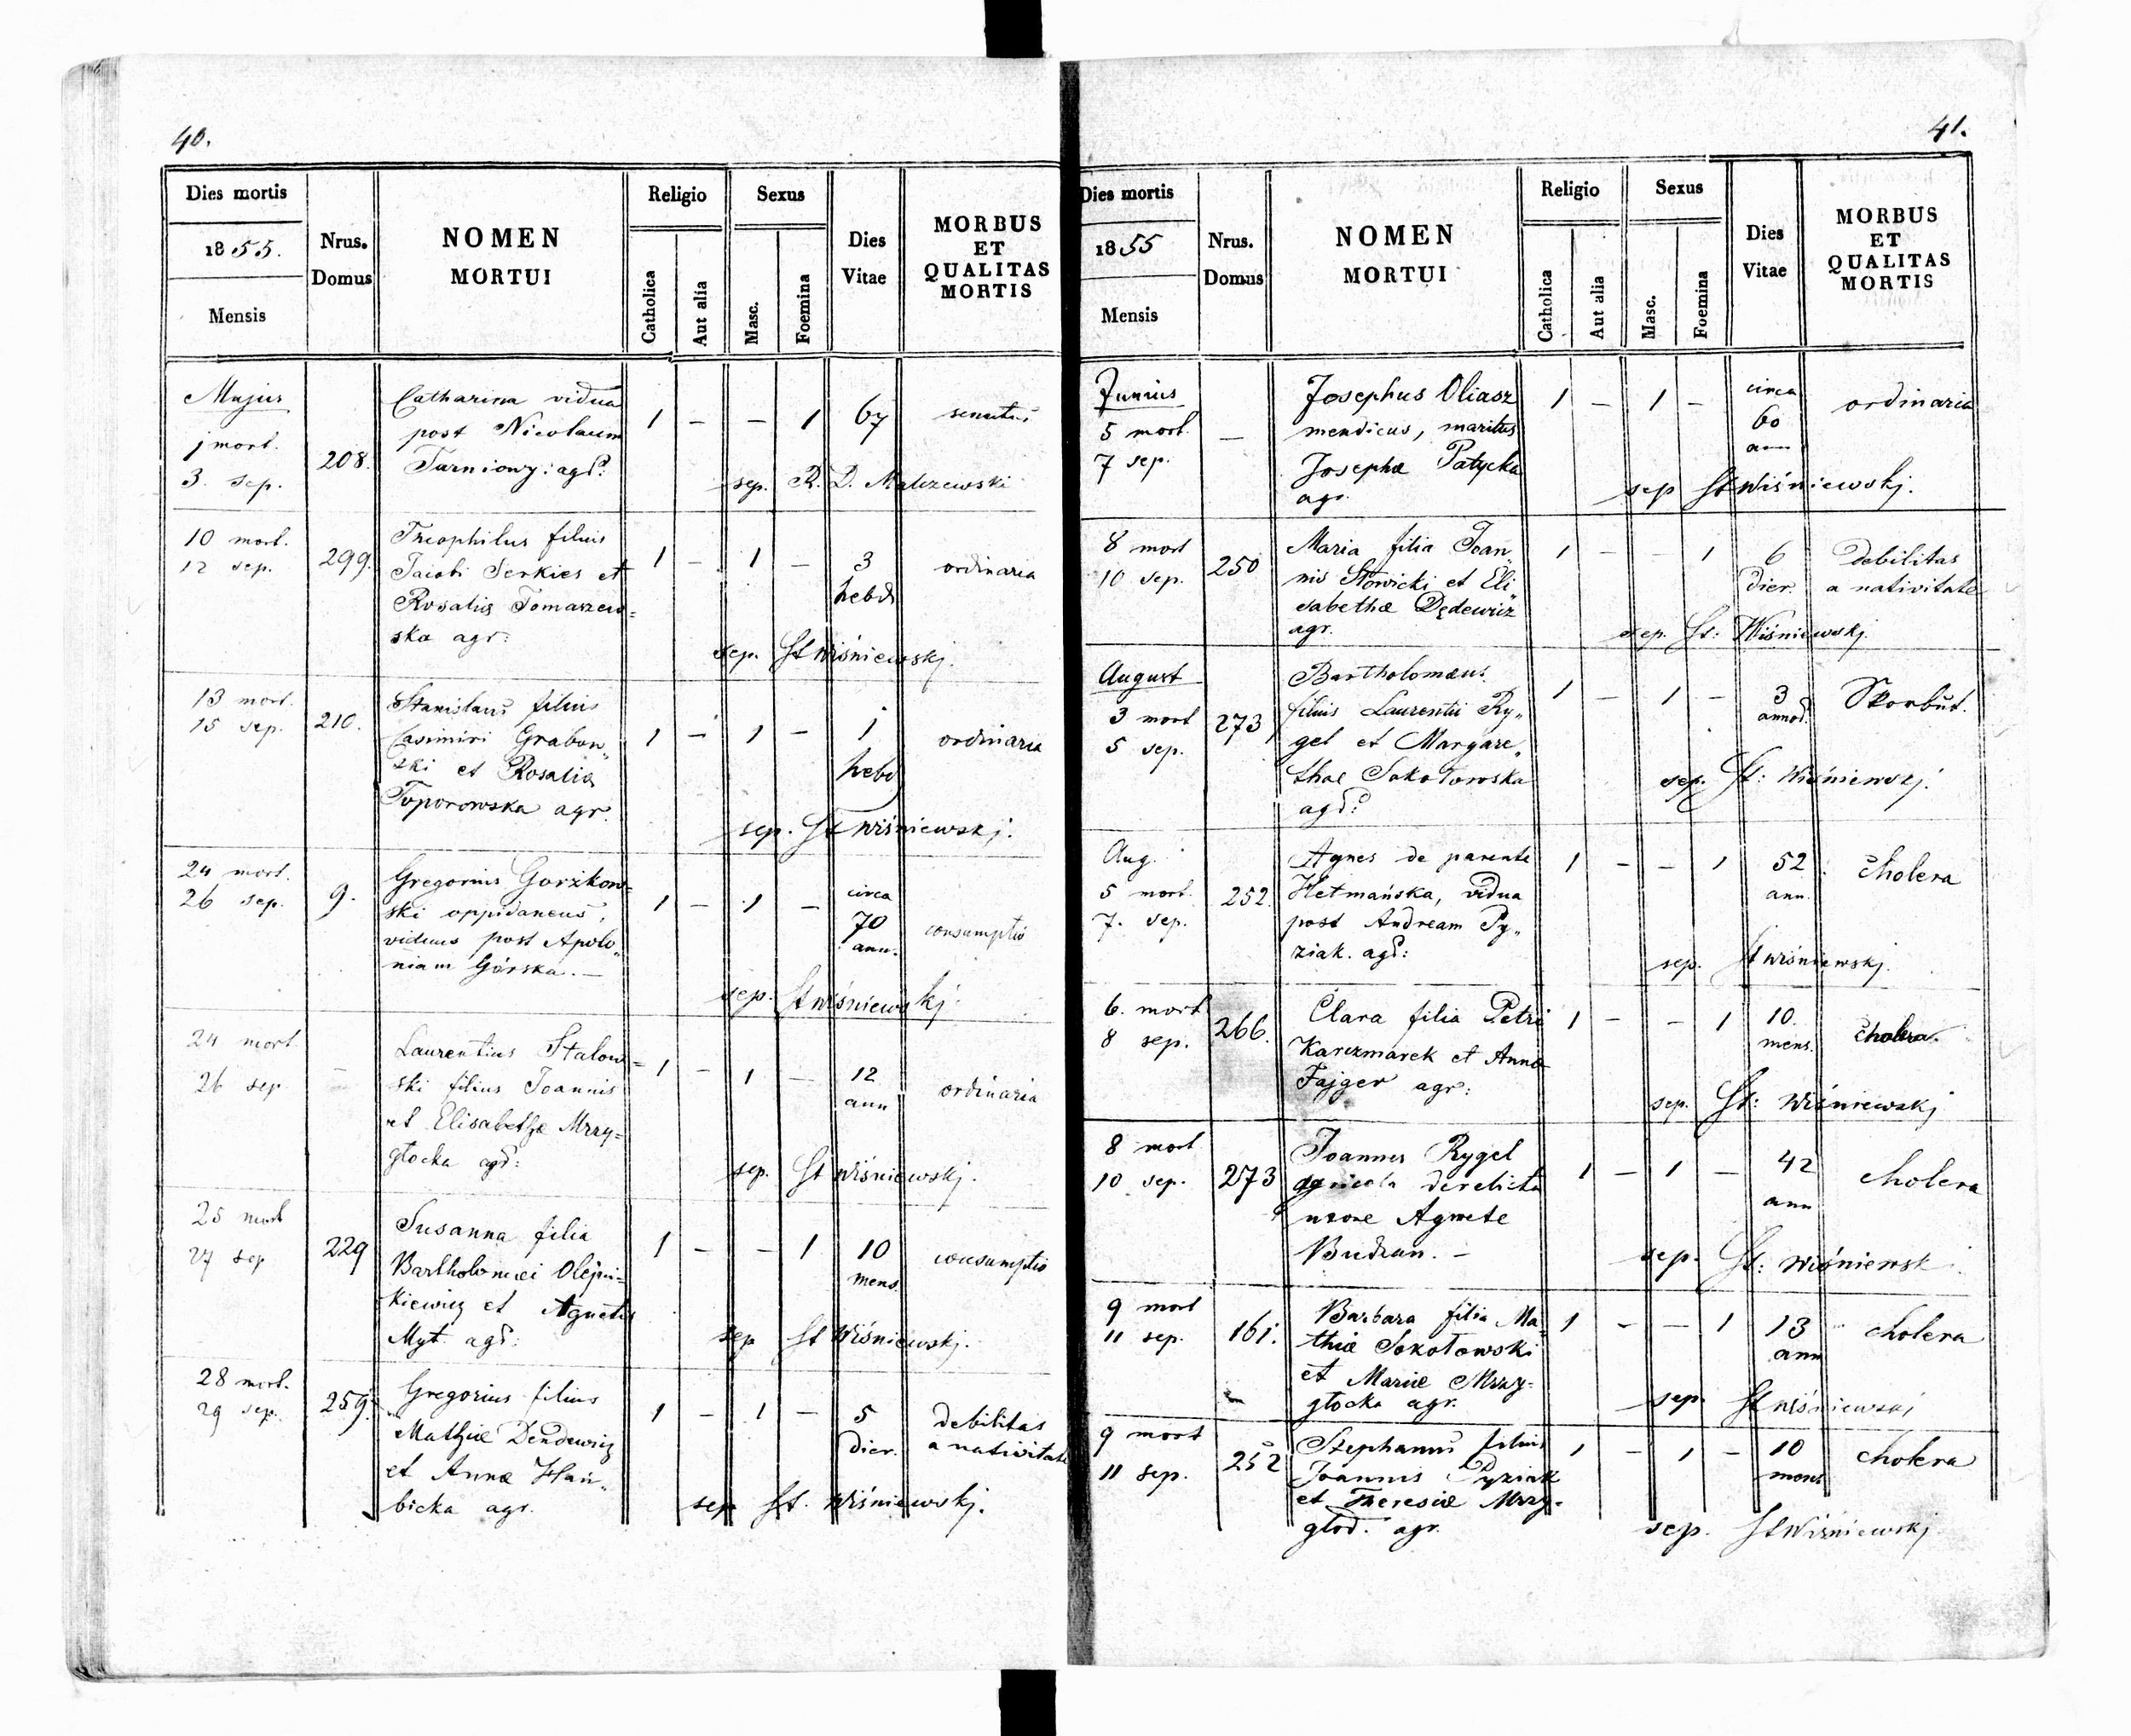 40.
Dies mortis
1855.
Mensis
Nrus.
Domus
NOMEN
MORTUI
Religio
Catholica
Aut alia
Sexus
Masc.
Foemina
Dies
Vitae
MORBUS
ET
QUALITAS
MORTIS
Majus
1 mort.
3. sep.
208.
Catharina vidua
post Nicolaum
Turniowy: agr:
1 - - 1
67
sep. R. D. Malczewski
10 mort.
12 sep.
299.
Theophilus filius
Jacobi Serkies et
Rosalia Tomaszew=
ska agr:
1 - 1 -
3
hebd
ordinaria
sep. St Wiśniewskj.
13 mort.
15 sep.
210.
Stanislaus filius
Casimiri Grabow„
ski et Rosalia
Toporowska agr.
1 - 1 -
1
hebd
ordinaria
sep. St Wiśniewskj.
24 mort.
26 sep.
9.
Gregorius Gorzkow=
ski oppidaneus,
viduus post Apolo„
niam Górska. —
1 - 1 -
circa
70
ann.
consumptio
sep. St Wiśniewskj.
24 mort
26 sep
-
Laurentius Stalow=
ski filius Joannis
et Elisabethæ Mrzy=
głocka agr:
1 - 1 -
12
ann
ordinaria
sep. St Wiśniewskj.
25 mort
27 sep
229
Susanna filia
Bartholomæi Olejni=
kiewicz et Agnetis
Myt. agr:
1 - - 1
10
mens.
consumptio
sep St Wiśniewskj.
28 mort.
29 sep.
259.
Gregorius filius
Mathiæ Dendewicz
et Annæ Hań„
bicka agr.
1 - 1 -
5
dier.
debilitas
a nativitate
sep St. Wiśniewskj.
41.
Dies mortis
1855
Mensis
Nrus.
Domus
NOMEN
MORTUI
Religio
Catholica
Aut alia
Sexus
Masc.
Foemina
Dies
Vitae
MORBUS
ET
QUALITAS
MORTIS
Junius
5 mort.
7 sep.
-
Josephus Oliasz
mendicus, maritus
Josephæ Patycka
agr.
1 - 1 -
circa
60
ann
ordinaria
sep St Wiśniewskj.
8 mort
10 sep.
250
Maria filia Joan„
nis Słowicki et Eli„
sabethæ Dędewicz
agr.
1 - - 1
6
dier.
debilitas
a nativitate
sep. St: Wiśniewskj.
August
3 mort
5 sep.
273
Bartholomæus
filius Laurentii Ry„
gel et Margare„
thae Sokołowska
agr:
1 - 1 -
3
annor.
Skorbut.
sep. St: Wiśniewskj.
Aug.
5 mort.
7. sep.
252.
Agnes de parente
Hetmańska, vidua
post Andream Py„
ziak. agr:
1 - - 1
52
ann.
cholera
sep. St Wiśniewskj.
6. mort
8 sep.
266.
Clara filia Petri
Karczmarek et Annæ
Fajger agr:
1 - - 1
10.
mens.
cholera.
sep. St: Wiśniewskj
8 mort
10 sep.
273
Joannes Rygel
agricola derelicta
uxore Agnete
Budzun. —
1 - 1 -
42
ann
cholera
sep. St: Wiśniewsk
9 mort
11 sep.
161.
Barbara filia Ma„
thiæ Sokołowski
et Mariæ Mrzy=
głocka agr.
1 - - 1
13
ann
cholera
sep. St Wiśniewskj
9 mort
11 sep.
252
Stephanus filius
Joannis Pyziak
et Theresiæ Mrzy=
głod. agr.
1 - 1 -
10
mens
cholera
sep. St Wiśniewskj.